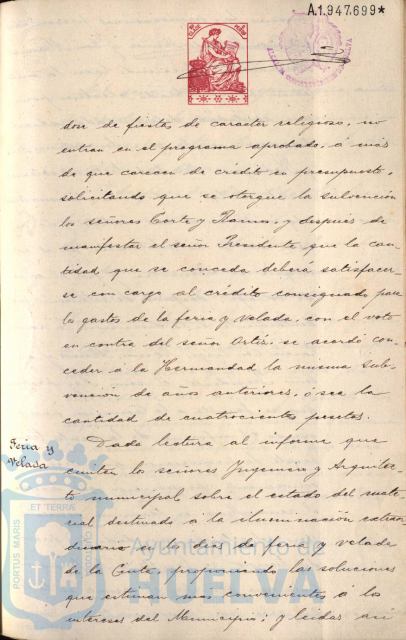 A.1.947.699*
dose de fiesta de caracter religioso, no
entran en el programa aprobado, á más
de que carecen de crédito en presupuesto,
solicitando que se otorgue la subvención
los señores Corte y Ramos, y después de
manifestar el señor Presidente que la can-
tidad que se conceda deberá satisfacer-
se con cargo al crédito consignado para
los gastos de la feria y velada, con el voto
en contra del señor Ortiz, se acordó con-
ceder á la Hermandad la misma sub-
vención de años anteriores, ó sea la
cantidad de cuatrocientas pesetas.
Feria y
Velada
Dada lectura al informe que
emiten los señores Ingeniero y Arquitec-
to municipal sobre el estado del mate-
rial destinado á la iluminación extraor-
dinaria en los dias de feria y velada
de la Cinta, proponiendo las soluciones
que estiman mas convenientes á los
intereses del Municipio; y leidas asi
PORTUS MARIS
ET TERRAE
Ayuntamiento de
HUELVA